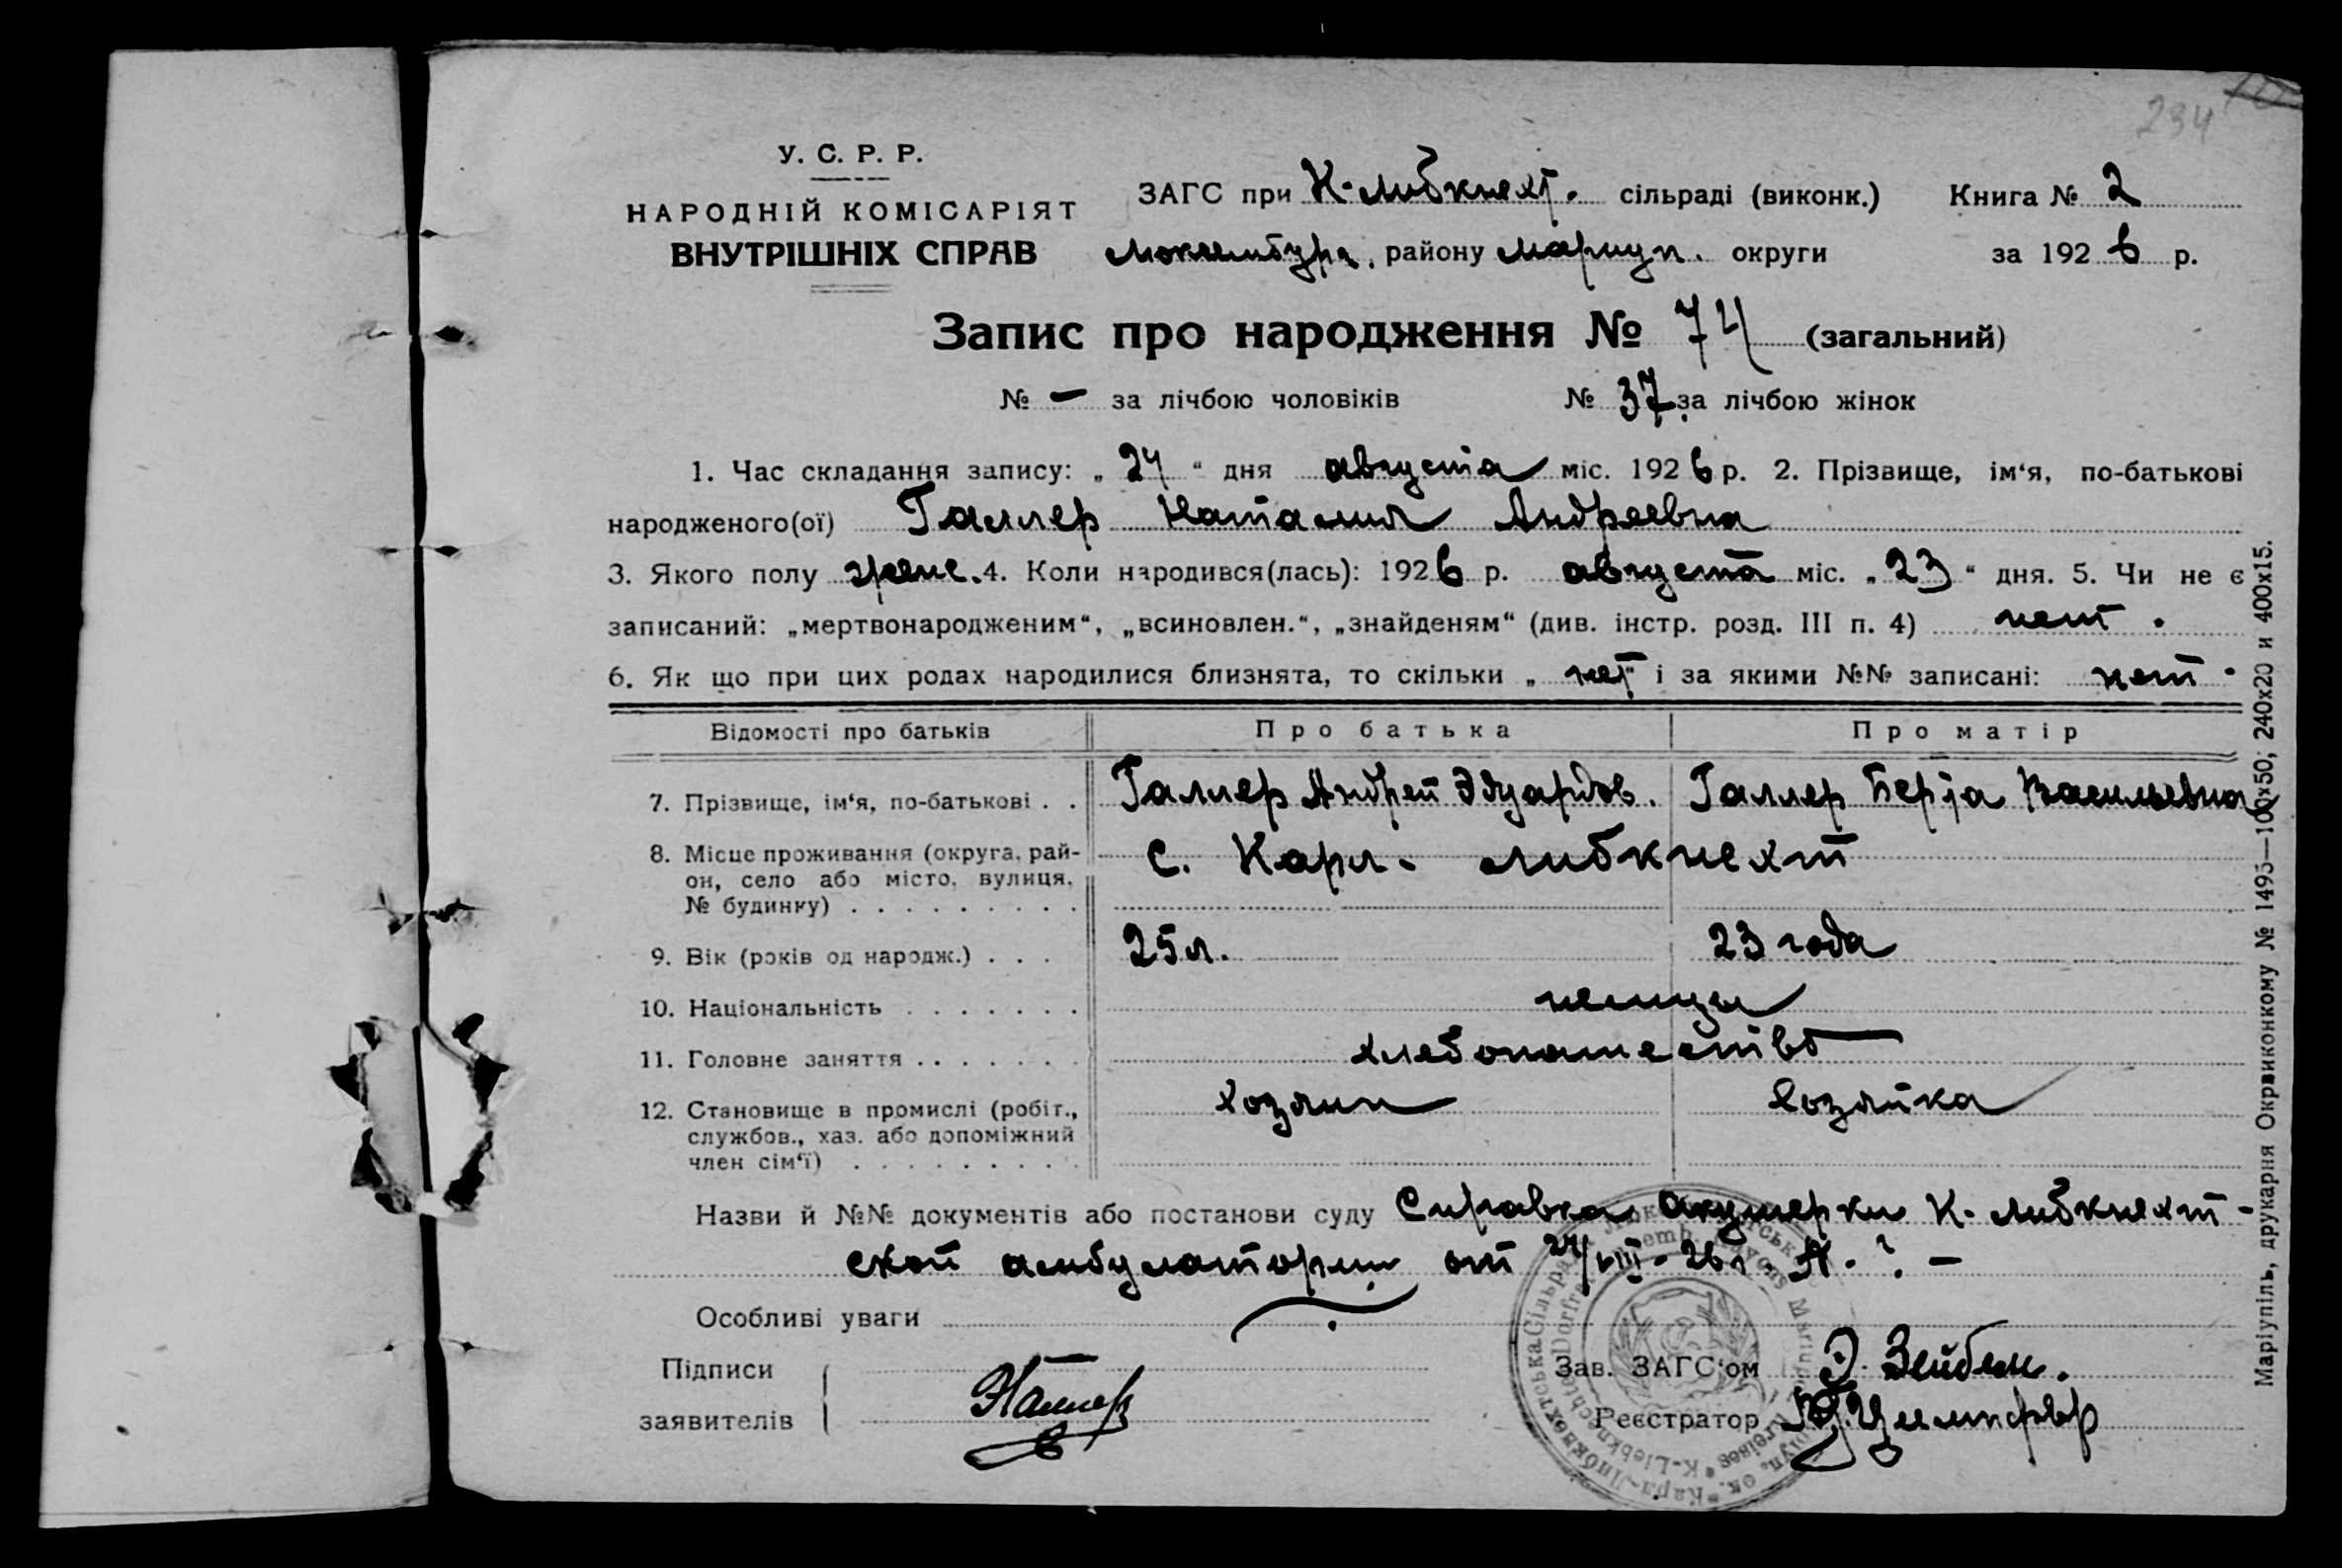 234
У. С. Р. Р.
НАРОДНІЙ КОМІСАРІЯТ
ВНУТРІШНІХ СПРАВ
ЗАГС при К-Либкнехт. сільраді (виконк.) Книга № 2
Люксембург. району Мариуп. округи за 1926 р.
Запис про народження № 74 (загальний)
№ — за лічбою чоловіків № 37 за лічбою жінок
1. Час складання запису: „ 24 “ дня августа міс. 1926 р. 2. Прізвище, ім‘я, по-батькові
народженого(ої) Галлер Наталия Андреевна
3. Якого полу женс. 4. Коли народився(лась): 1926 р. августа міс. „ 23 “ дня. 5. Чи не є
записаний: „мертвонародженим“, „всиновлен.“, „знайденям“ (див. інстр. розд. III п. 4) нет.
6. Як що при цих родах народилися близнята, то скільки „ нет “ і за якими №№ записані: нет.
Відомості про батьків Про батька Про матір
7. Прізвище, ім‘я, по-батькові . . Галлер Андрей Эдуардов. Галлер Берта Васильевна
8. Місце проживання (округа, рай- с. Карл-Либкнехт
он, село або місто, вулиця,
№ будинку) . . . . . . . . .
9. Вік (років од народж.) . . . 25 л. 23 года
10. Національність . . . . . . . немцы
11. Головне заняття . . . . . . . хлебопашество
12. Становище в промислі (робіт., хозяин хозяйка
службов., хаз. або допоміжний
член сім‘ї) . . . . . . . . .
Назви й №№ документів або постанови суду Справка акушерки К-Либкнехт-
ской амбулатории от 24/VIII-26 г. №-?. —
Особливі уваги
Підписи
заявителів Галлер
Зав. ЗАГС‘ом Э. Зейбель.
Реєстратор
Маріупіль, друкарня Окрвиконкому № 1495—100х50; 240х20 и 400х15.